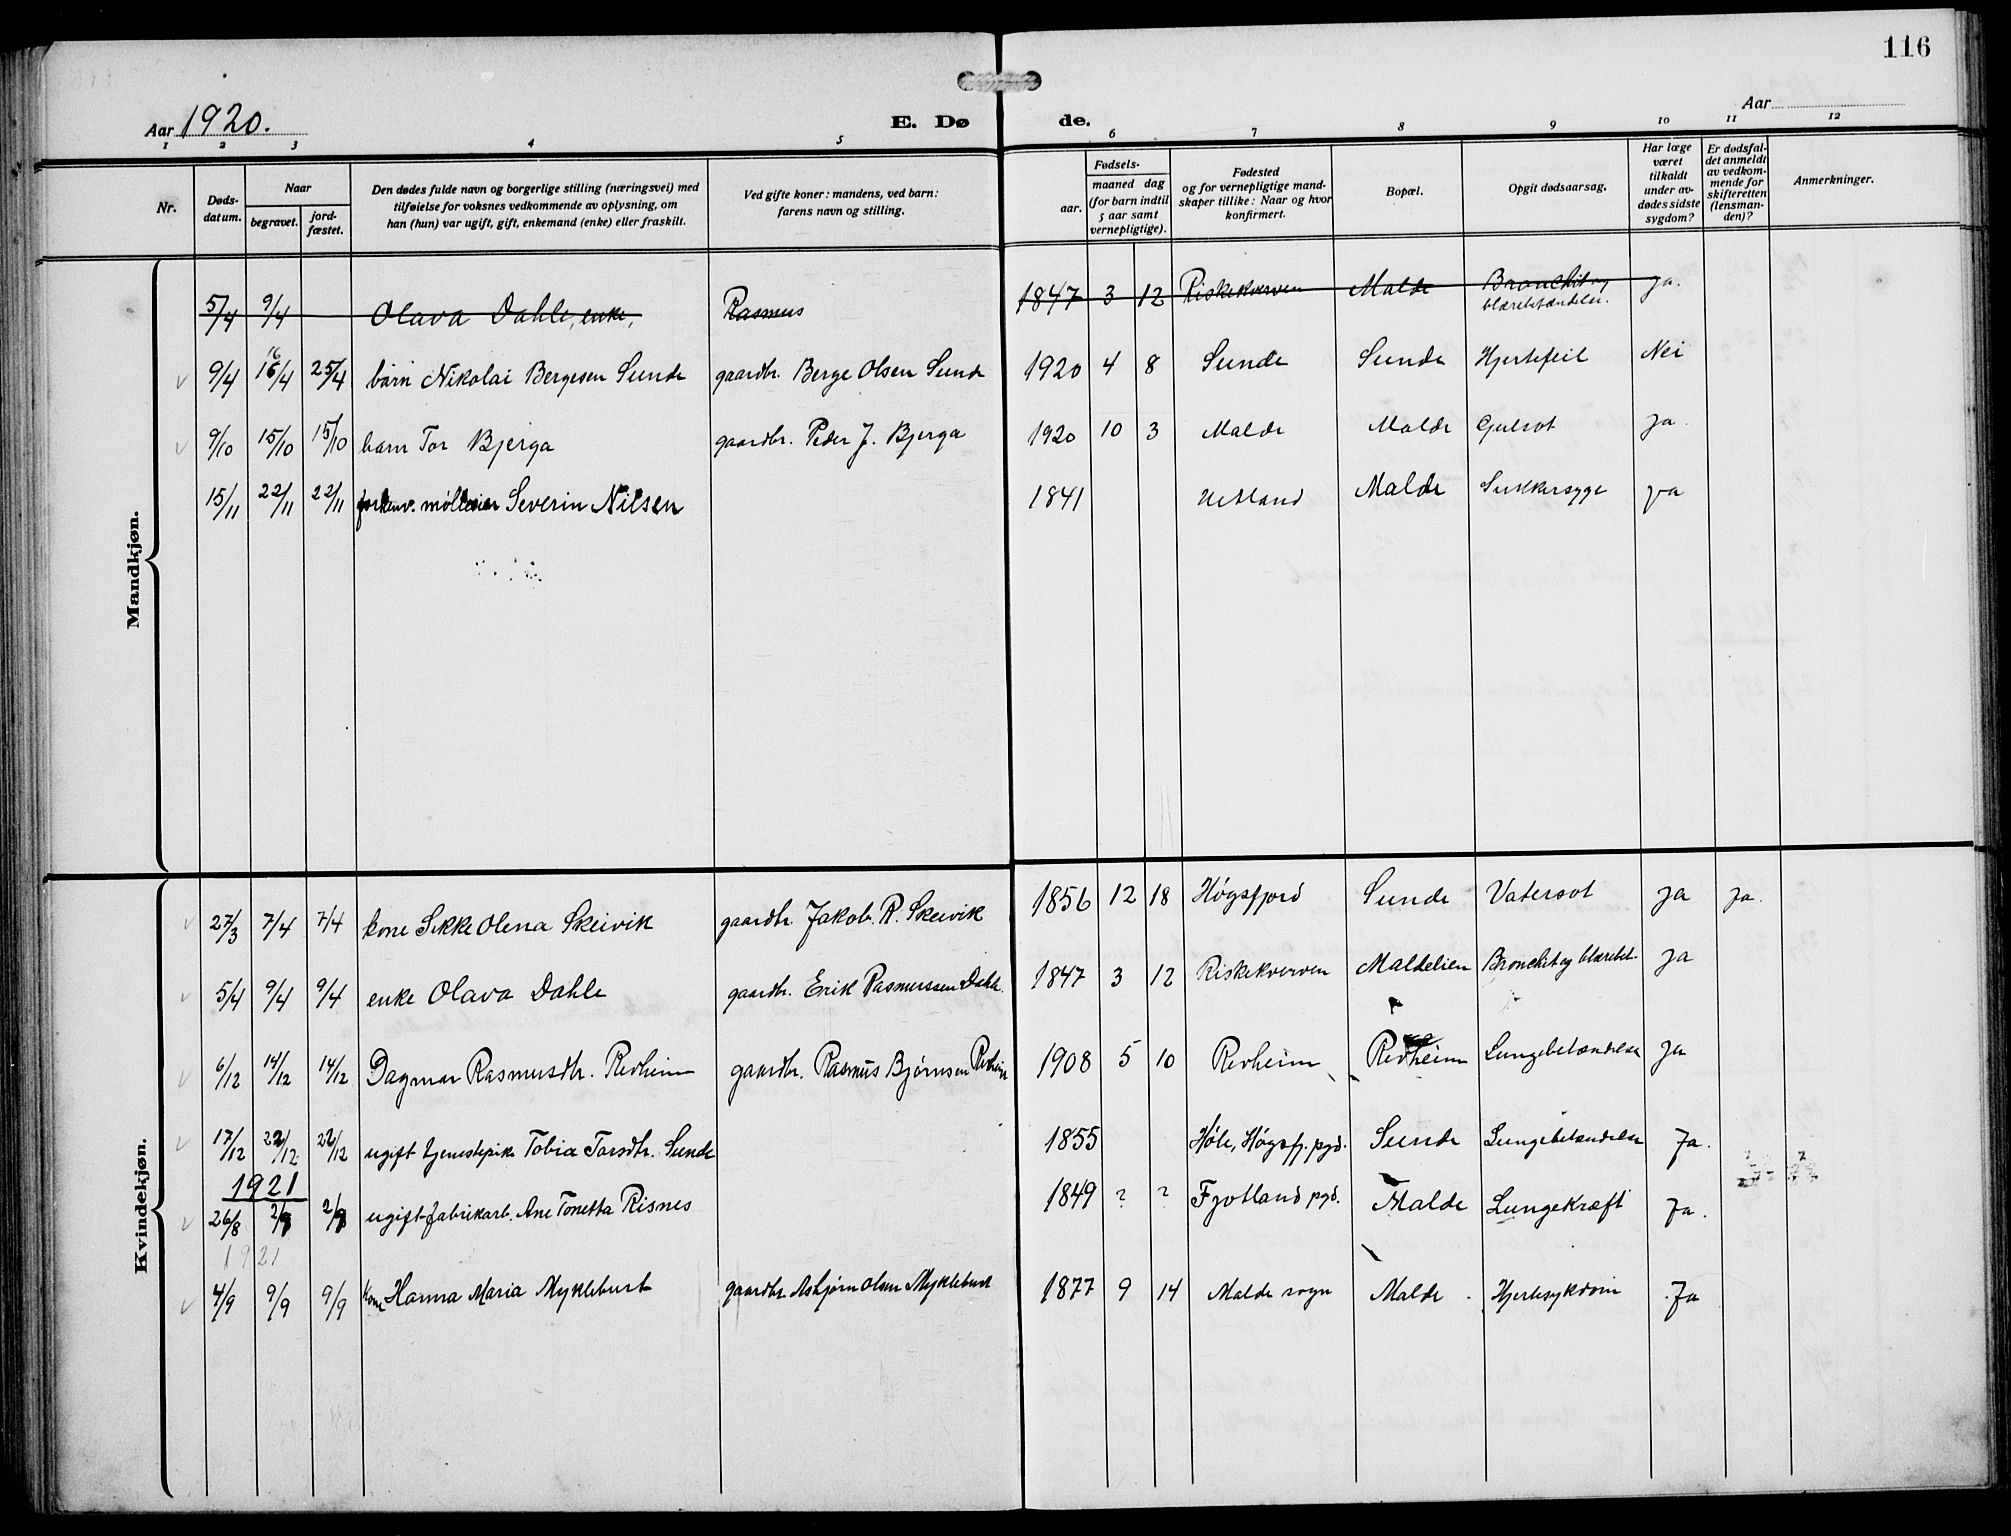 116
Aar 1920.
E. Dø de.
Aar
1 2 3 4 5 6 7 8 9 10 11 12
Nr.
Døds-
datum.
Naar
begravet.
jord-
fæstet.
Den dødes fulde navn og borgerlige stilling (næringsvei) med
tilføielse for voksnes vedkommende av oplysning, om
han (hun) var ugift, gift, enkemand (enke) eller fraskilt.
Ved gifte koner: mandens, ved barn:
farens navn og stilling.
Fødsels-
aar.
maaned dag
(for barn indtil
5 aar samt
vernepligtige).
Fødested
og for vernepligtige mand-
skaper tillike: Naar og hvor
konfirmert.
Bopæl.
Opgit dødsaarsag.
Har læge
været
tilkaldt
under av-
dødes sidste
sygdom?
Er dødsfal-
det anmeldt
av vedkom-
mende for
skifteretten
(lensman-
den)?
Anmerkninger.
Mandkjøn.
5/4 9/4 Olava Dahle, enke, Rasmus 1847 3 12 Riskekverven Malde Bronchit og blærebetændelse. ja.
9/4 16/4 25/4 barn Nikolai Bergesen Sunde gaardbr. Berge Olsen Sunde 1920 4 8 Sunde Sunde Hjertefeil Nei
9/10 15/10 15/10 barn Tor Bjerga gaardbr. Peder J. Bjerga 1920 10 3 Malde Malde Gulsot ja.
15/11 22/11 22/11 møller Severin Nilsen 1841 Malde Sukkersyge ja
Kvindekjøn.
27/3 7/4 7/4 kone Sikke Olena Skeivik gaardbr. Jakob R. Skeivik 1856 12 18 Høgsfjord Sunde Vatersot ja ja.
5/4 9/4 9/4 enke Olava Dahle gaardbr. Erik Rasmussen Dahle. 1847 3 12 Riskekverven Maldelien Bronchit og blærebet. ja
6/12 14/12 14/12 Dagmar Rasmusdtr. Revheim gaardbr. Rasmus Bjørnsen Revheim 1908 5 10 Revheim Revheim Lungebetændelse ja
17/12 22/12 22/12 ugift tjenestepike Tobia Torsdtr. Sunde 1855 Høle, Høgsfj. pgd. Sunde Lungebetændelse Ja.
1921
26/8 2/9 2/9 ugift fabrikarb. Ane Tonetta Risnes 1849 ? ? Fjotland pgd. Malde Lungekræft Ja.
1921
4/9 9/9 9/9 kone Hanna Maria Myklebust gaardbr Asbjørn Olsen Myklebust 1877 9 14 Malde sogn Malde Hjertesykdom Ja